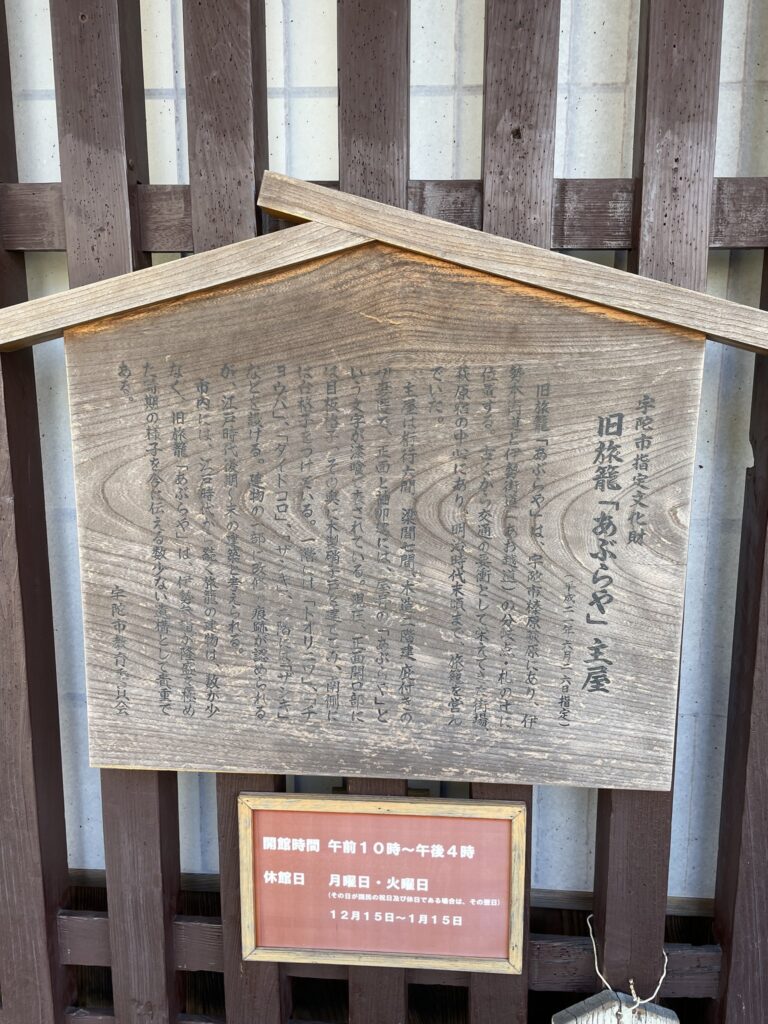 宇陀市指定文化財
旧旅籠「あぶらや」主屋
（平成二一年六月二六日指定）
旧旅籠「あぶらや」は、宇陀市榛原萩原にあり、伊
勢本街道と伊勢街道（あお越道）の分岐点・札の辻に
位置する。古くから交通の要衝として栄えてきた街場
萩原宿の中心にあり、明治時代末頃まで、旅籠を営ん
でいた。
主屋は桁行六間、梁間七間、木造二階建、庇付きの
切妻造で、正面と袖卯建には、屋号の「あぶらや」と
いう文字が漆喰で表されている。現在、正面開口部に
は目板格子、その奥に木製硝子戸を建て込み、両側に
は台格子をつけている。一階には、「トオリニワ」、「コチ
ョウバ」、「ダイドコロ」、「ザシキ」、二階には「ザシキ」
などを設ける。建物の一部に改修の痕跡が認められる
が、江戸時代後期〜末の建築と考えられる。
市内には、江戸時代から続く旅籠の建物は、数が少
なく、旧旅籠「あぶらや」は、伊勢参宮が隆盛を極め
た時期の様子を今に伝える数少ない遺構として貴重で
ある。
宇陀市教育委員会
開館時間 午前10時〜午後4時
休館日 月曜日・火曜日
（その日が国民の祝日及び休日である場合は、その翌日）
12月15日〜1月15日